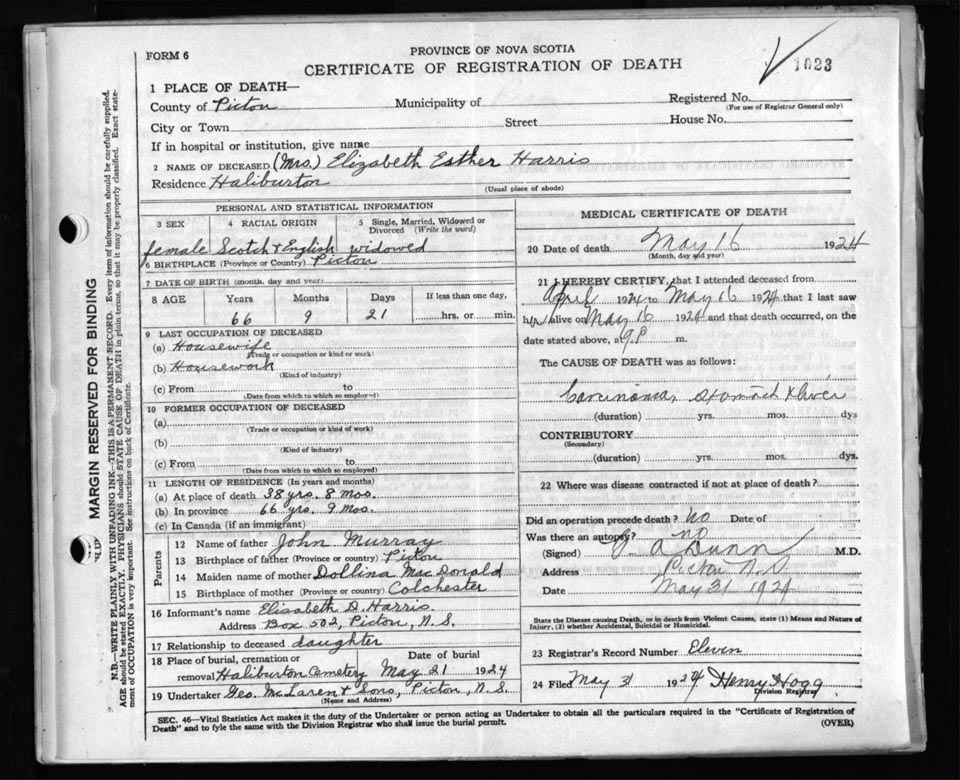 FORM 6
PROVINCE OF NOVA SCOTIA
CERTIFICATE OF REGISTRATION OF DEATH
1023
1 PLACE OF DEATH—
County of Picton Municipality of Registered No.
(For use of Registrar General only)
City or Town Street House No.
If in hospital or institution, give name
2 NAME OF DECEASED (Mrs.) Elizabeth Esther Harris
Residence Haliburton
(Usual place of abode)
PERSONAL AND STATISTICAL INFORMATION
3 SEX 4 RACIAL ORIGIN 5 Single, Married, Widowed or Divorced (Write the word)
female Scotch & English widowed
6 BIRTHPLACE (Province or Country) Picton
7 DATE OF BIRTH (month, day and year)
8 AGE Years Months Days If less than one day,
66 9 21 hrs. or min.
9 LAST OCCUPATION OF DECEASED
(a) Housewife
(Trade or occupation or kind or work)
(b) Housework
(Kind of industry)
(c) From to
(Date from which to which so employed)
10 FORMER OCCUPATION OF DECEASED
(a)
(Trade or occupation or kind of work)
(b)
(Kind of industry)
(c) From to
(Date from which to which so employed)
11 LENGTH OF RESIDENCE (In years and months)
(a) At place of death 38 yrs. 8 mos.
(b) In province 66 yrs. 9 mos.
(c) In Canada (if an immigrant)
Parents
12 Name of father John Murray
13 Birthplace of father (Province or country) Picton
14 Maiden name of mother Dollina MacDonald
15 Birthplace of mother (Province or country) Colchester
16 Informant's name Elisabeth D. Harris.
Address Box 502, Picton, N.S.
17 Relationship to deceased daughter
18 Place of burial, cremation or Date of burial
removal Haliburton Cemetery May 21 1924
19 Undertaker Geo. McLaren & Sons, Picton, N.S.
(Name and Address)
MEDICAL CERTIFICATE OF DEATH
20 Date of death May 16 1924
(Month, day and year)
21 I HEREBY CERTIFY, that I attended deceased from
April 1924 to May 16 1924 that I last saw
her alive on May 16 1924 and that death occurred, on the
date stated above, at 9 P m.
The CAUSE OF DEATH was as follows:
Carcinoma, Stomach & liver
(duration) yrs. mos. dys
CONTRIBUTORY
(Secondary)
(duration) yrs. mos. dys.
22 Where was disease contracted if not at place of death?
Did an operation precede death? no Date of
Was there an autopsy? no
(Signed) A Dunn M.D.
Address Picton N.S.
Date May 31 1924
State the Disease causing Death, or in death from Violent Causes, state (1) Means and Nature of
Injury, (2) whether Accidental, Suicidal or Homicidal.
23 Registrar's Record Number Eleven
24 Filed May 31 1924 Henry Hogg
Division Registrar
SEC. 46—Vital Statistics Act makes it the duty of the Undertaker or person acting as Undertaker to obtain all the particulars required in the "Certificate of Registration of
Death" and to fyle the same with the Division Registrar who shall issue the burial permit. (OVER)
MARGIN RESERVED FOR BINDING
N.B.—WRITE PLAINLY WITH UNFADING INK—THIS IS A PERMANENT RECORD. Every item of information should be carefully supplied.
AGE should be stated EXACTLY. PHYSICIANS should STATE CAUSE OF DEATH in plain terms, so that it may be properly classified. Exact state-
ment of OCCUPATION is very important. See instructions on back of Certificate.